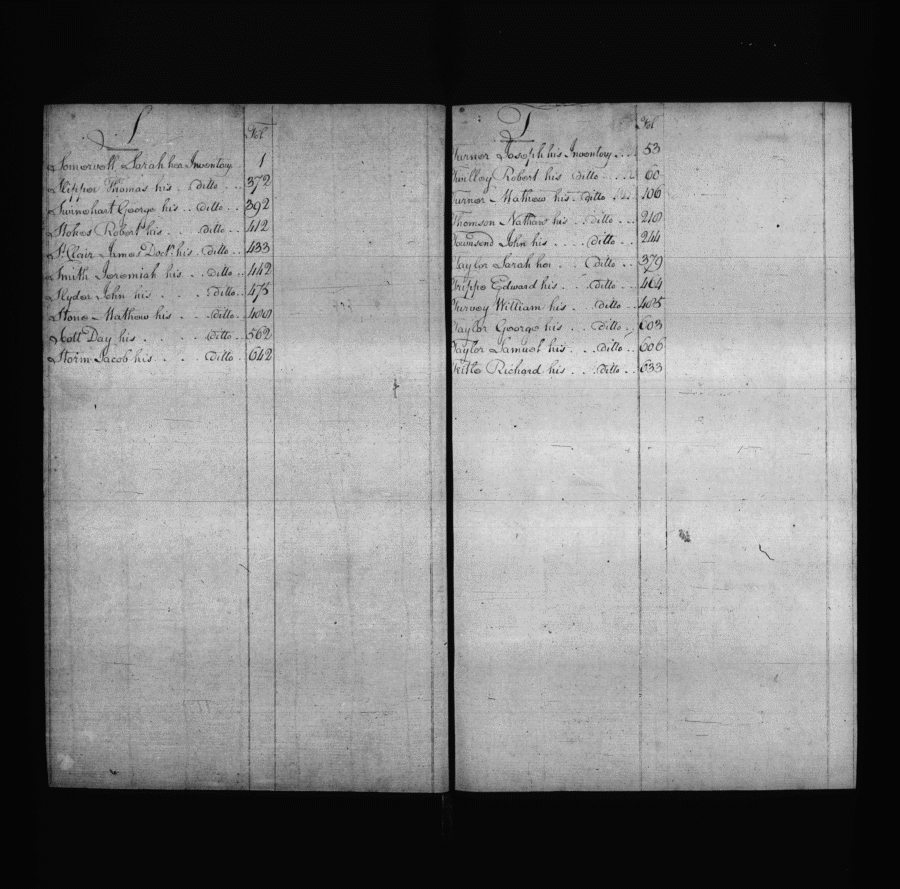 S
Fol
Somervell Sarah her Inventory 1
Skipper Thomas his . . ditto . . . 372
Swinehart George his . . ditto . . 392
Stokes Robert his . . ditto . . 412
St Clair James Doct.r his . . ditto . . 433
Smith Jeremiah his . . ditto . . 442
Slyder John his . . . ditto . . 475
Stone Mathew his . . . ditto . .
Scott Day his . . . . ditto . . 562
Storm Jacob his . . . ditto . . 642
T
Fol
Turner Joseph his Inventory . . . 53
Twilley Robert his ditto . . . 60
Turner Mathew his . ditto 106
Thomson Nathan his . . ditto . . 210
Townsend John his . . . . ditto . . 244
Taylor Sarah her . . ditto . . . 379
Trippe Edward his . . . ditto . . . 464
Turvey William his . . ditto . . 485
Taylor George his . . . ditto . . 603
Taylor Samuel his . . . ditto . . 606
Richard his . . . ditto . . 633